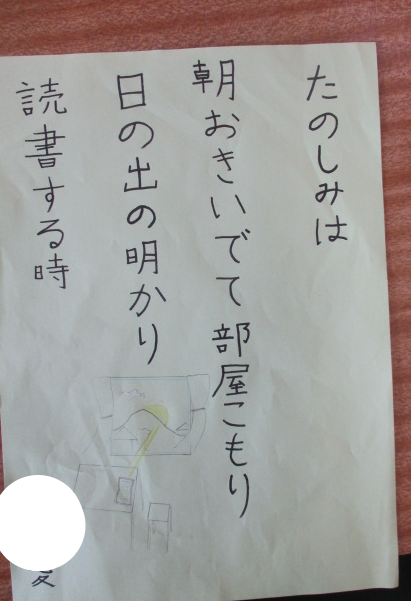 たのしみは
朝おきいでて部屋こもり
日の出の明かり
読書する時